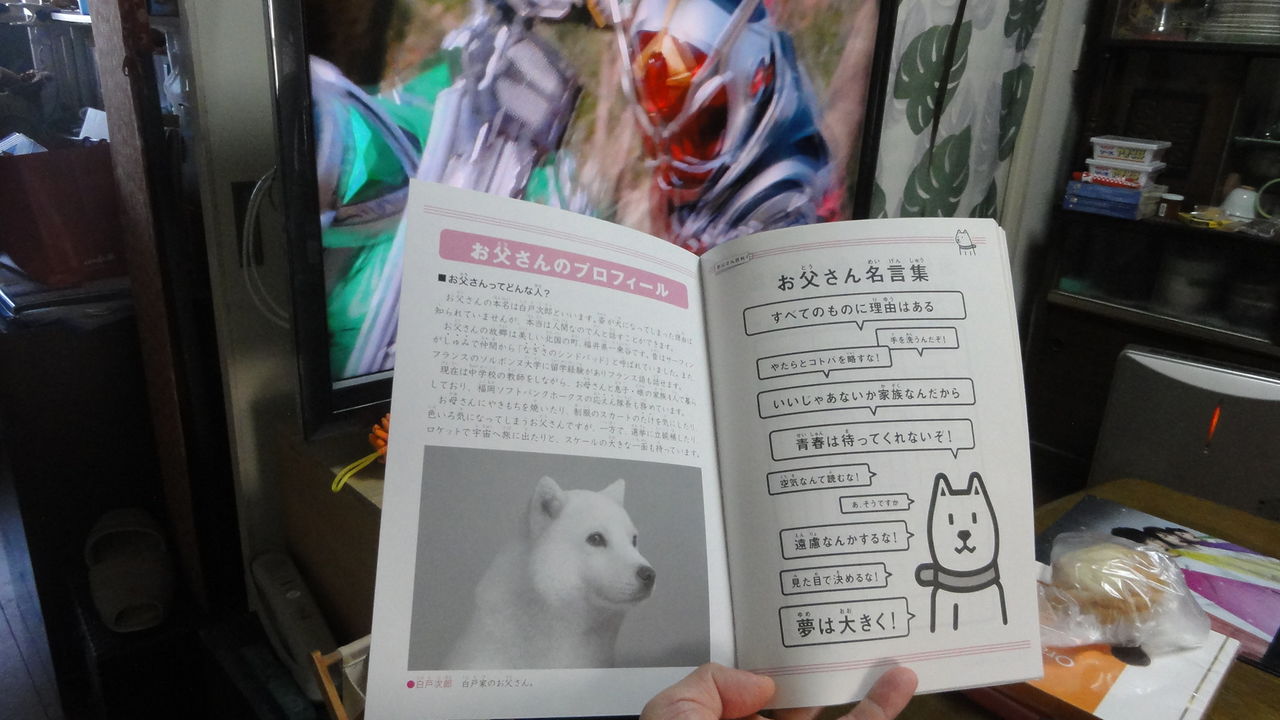 お父さんのプロフィール
■お父さんってどんな人？
お父さんの本名は白戸次郎といいます。姿が犬になってしまった理由は
知られていませんが、本当は人間なので人と話すことができます。
お父さんの故郷は美しい北国の町、福井県一乗谷です。昔はサーフィン
がしゅみで仲間から「なぎさのシンドバッド」と呼ばれていました。また
フランスのソルボンヌ大学に留学経験がありフランス語も話せます。
現在は中学校の教師をしながら、お母さんと息子・娘の家族4人で暮ら
しており、福岡ソフトバンクホークスの応えん隊長も務めています。
お母さんにやきもちを焼いたり、制服のスカートのたけを気にしたり、
色いろ気になってしまうお父さんですが、一方で、選挙に立候補したり、
ロケットで宇宙へ旅に出たりと、スケールの大きな一面も持っています。
●白戸次郎 白戸家のお父さん。
お父さん名言集
すべてのものに理由はある
手を洗うんだぞ！
やたらとコトバを略すな！
いいじゃあないか家族なんだから
青春は待ってくれないぞ！
空気なんて読むな！
あ、そうですか
遠慮なんかするな！
見た目で決めるな！
夢は大きく！